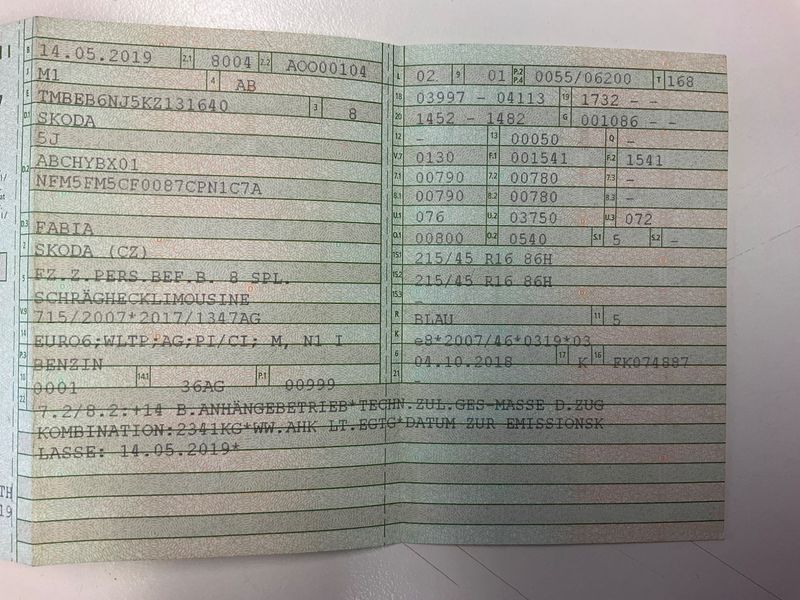 B 14.05.2019 2.1 8004 2.2 AOO00104
J M1 4 AB
E TMBEB6NJ5KZ131640 3 8
D.1 SKODA
5J
D.2 ABCHYBX01
NFM5FM5CF0087CPN1C7A
D.3 FABIA
2 SKODA (CZ)
5 FZ.Z.PERS.BEF.B. 8 SPL.
SCHRÄGHECKLIMOUSINE
V.9 715/2007*2017/1347AG
14 EURO6;WLTP;AG;PI/CI; M, N1 I
P.3 BENZIN
10 0001 14.1 36AG P.1 00999
L 02 9 01 P.2 P.4 0055/06200 T 168
18 03997 - 04113 19 1732 - -
20 1452 - 1482 G 001086 - -
12 - 13 00050 Q -
V.7 0130 F.1 001541 F.2 1541
7.1 00790 7.2 00780 7.3 -
8.1 00790 8.2 00780 8.3 -
U.1 076 U.2 03750 U.3 072
O.1 00800 O.2 0540 S.1 5 S.2 -
15.1 215/45 R16 86H
15.2 215/45 R16 86H
15.3 -
R BLAU 11 5
K e8*2007/46*0319*03
6 04.10.2018 17 K 16 FK074887
21 -
22 7.2/8.2:+14 B.ANHÄNGEBETRIEB*TECHN.ZUL.GES-MASSE D.ZUG
KOMBINATION:2341KG*WW.AHK LT.EGTG*DATUM ZUR EMISSIONSK
LASSE: 14.05.2019*
TH
19